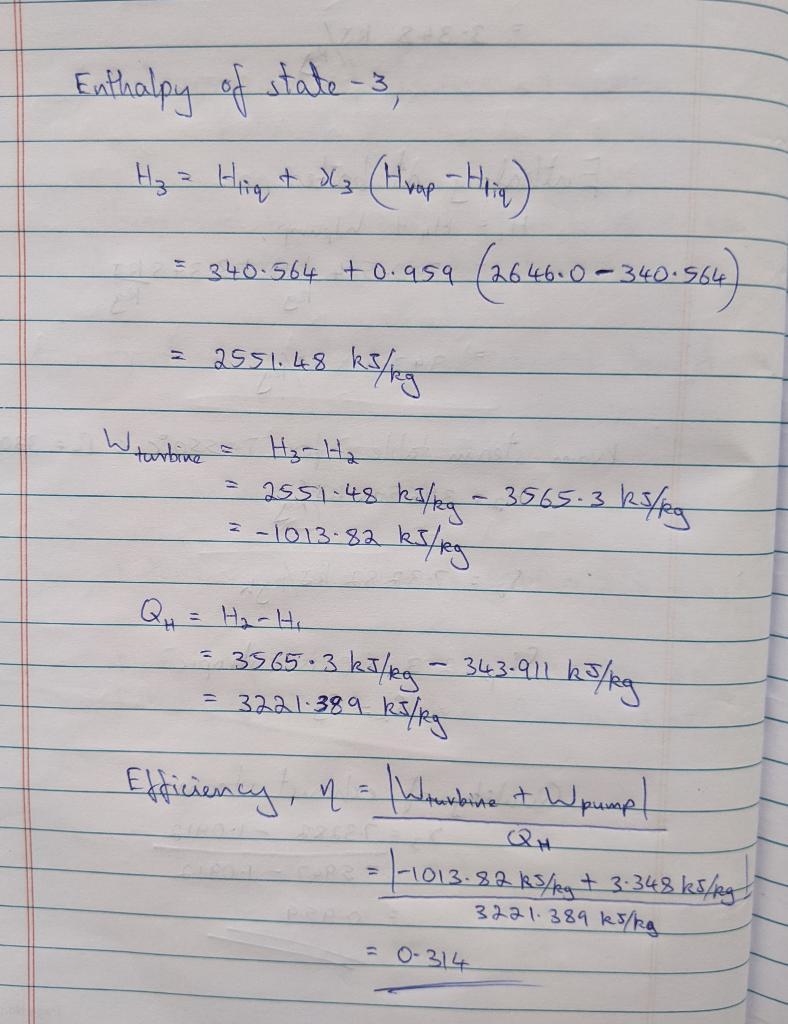 Enthalpy of state-3,
H₃ = Hliq + x₃ (Hvap - Hliq)
= 340.564 + 0.959 (2646.0 - 340.564)
= 2551.48 kJ/kg
Wturbine = H₃-H₂
= 2551.48 kJ/kg - 3565.3 kJ/kg
= -1013.82 kJ/kg
QH = H₂-H₁
= 3565.3 kJ/kg - 343.911 kJ/kg
= 3221.389 kJ/kg
Efficiency, η = |Wturbine + Wpump|
QH
= |-1013.82 kJ/kg + 3.348 kJ/kg|
3221.389 kJ/kg
= 0.314